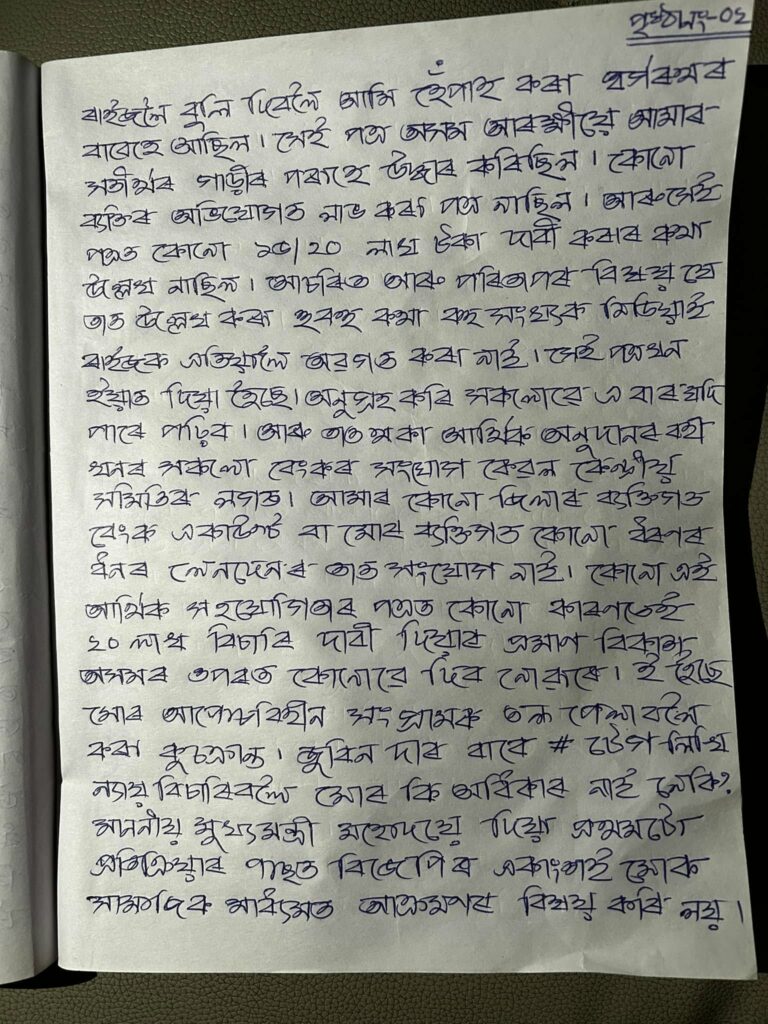 পৃষ্ঠা নং-০২
ৰাইজলৈ বুলি দিবলৈ আমি হেঁপাহ কৰা
বাবেহে আছিল। সেই পত্ৰ অসম আৰক্ষীয়ে আমাৰ
সতীৰ্থৰ গাড়ীৰ পৰাহে উদ্ধাৰ কৰিছিল। কোনো
ব্যক্তিৰ অভিযোগত লাভ কৰা পত্ৰ নাছিল। আৰু সেই
পত্ৰত কোনো ১৫/২০ লাখ টকা দাবী কৰাৰ কথা
উল্লেখ নাছিল। আচৰিত আৰু পৰিতাপৰ বিষয় যে
তাত উল্লেখ কৰা হুবহু কথা বহু সংখ্যক মিডিয়াই
ৰাইজক এতিয়ালৈ অৱগত কৰা নাই। সেই পত্ৰখন
ইয়াত দিয়া হৈছে। অনুগ্ৰহ কৰি সকলোৱে এবাৰ যদি
পাৰে পঢ়িব। আৰু তাত থকা আৰ্থিক অনুদানৰ বহী
খনৰ সকলো বেংকৰ সংযোগ কেৱল কেন্দ্ৰীয়
সমিতিৰ লগত। আমাৰ কোনো জিলাৰ ব্যক্তিগত
বেংক একাউণ্ট বা মোৰ ব্যক্তিগত কোনো ধৰণৰ
ধনৰ লেনদেনৰ তাত সংযোগ নাই। কোনো এই
আৰ্থিক সহযোগিতাৰ পত্ৰত কোনো কাৰণতেই
২০ লাখ বিচাৰি দাবী দিয়াৰ প্ৰমাণ বিকাশ
অসমৰ ওপৰত কোনোৱে দিব নোৱাৰে। ই হৈছে
মোৰ আপোচবিহীন সংগ্ৰামক তল পেলাবলৈ
কৰা কুচক্ৰান্ত। জুবিন দাৰ বাবে # টেগ লিখি
ন্যায় বিচাৰিবলৈ মোৰ কি অধিকাৰ নাই নেকি?
মাননীয় মুখ্যমন্ত্ৰী মহোদয়ে দিয়া প্ৰথমটো
প্ৰতিক্ৰিয়াৰ পাছত বিজেপিৰ একাংশই মোক
সামাজিক মাধ্যমত আক্ৰমণৰ বিষয় কৰি লয়।